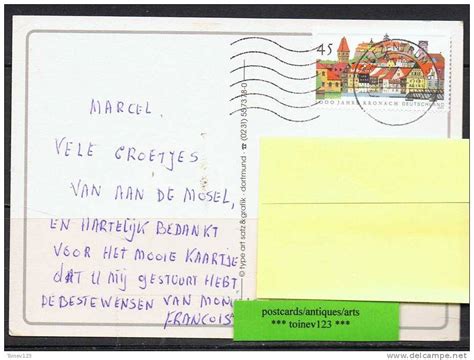 MARCEL.
VELE GROETJES
VAN AAN DE MOSEL,
EN HARTELIJK BEDANKT
VOOR HET MOOIE KAARTJE
DAT U MIJ GESTUURT HEBT,
DE BESTE WENSEN VAN MON
FRANCOIS
© type art satz & grafik · dortmund · ☎ (0231) 55 73 78-0
45
1000 JAHRE KRONACH DEUTSCHLAND
postcards/antiques/arts
*** toinev123 ***
Toinev123
delcampe.net